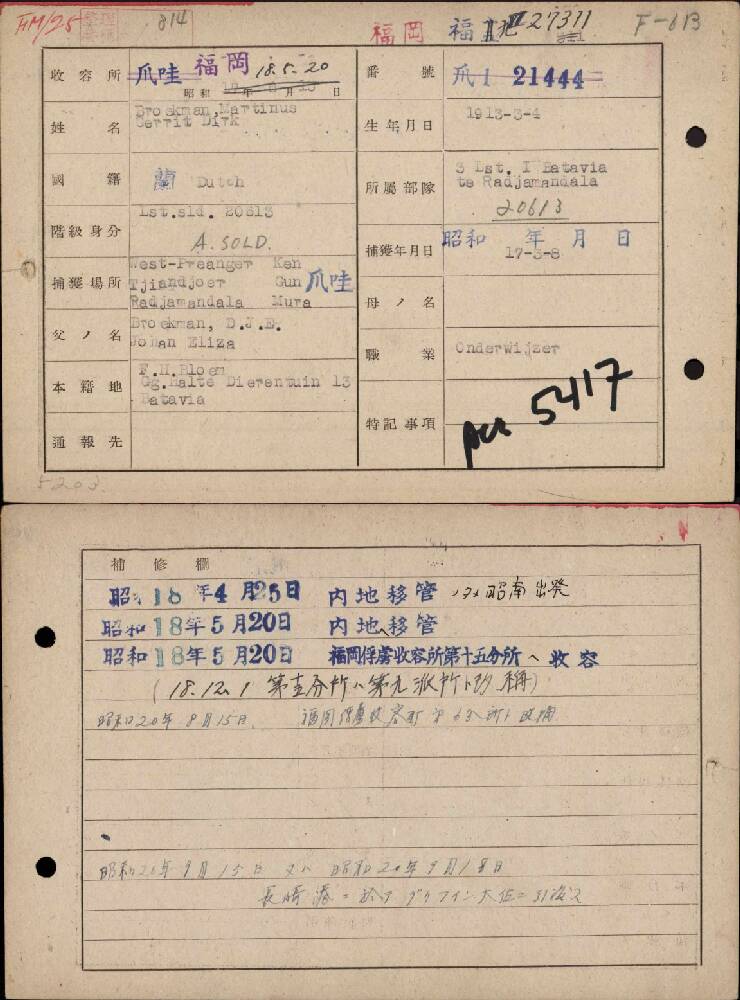 HM/25 814 福岡 27311 F-613
收容所 爪哇 福岡 18.5.20
昭和 年 月 日
番號 爪I 21444
姓名 Broekman, Martinus
Gerrit Dirk
生年月日 1913-3-4
國籍 蘭 Dutch
所屬部隊 3 Lst. I Batavia
te Radjamandala
20613
階級身分 Lst.sld. 20613
A. SOLD.
捕獲年月日 昭和 年 月 日
17-3-8
捕獲場所 West-Preanger Ken
Tjiandjoer Gun 爪哇
Radjamandala Mura
母ノ名
父ノ名 Broekman, D.J.E.
Johan Eliza
職業 Onderwijzer
本籍地 F.H.Bloem
Gg.Halte Dierentuin 13
Batavia
特記事項 5417
通報先
5203
補修欄
昭和18年4月25日 内地移管 昭南出発
昭和18年5月20日 内地移管
昭和18年5月20日 福岡俘虜收容所第十五分所へ收容
(18.12.1 第十五分所ハ第九派所ト改稱)
昭和20年8月15日 福岡俘虜收容所第6分所ト改稱
昭和20年9月15日 又ハ 昭和20年9月18日
長崎港ニ於テ グリフイン大佐ニ引渡ス